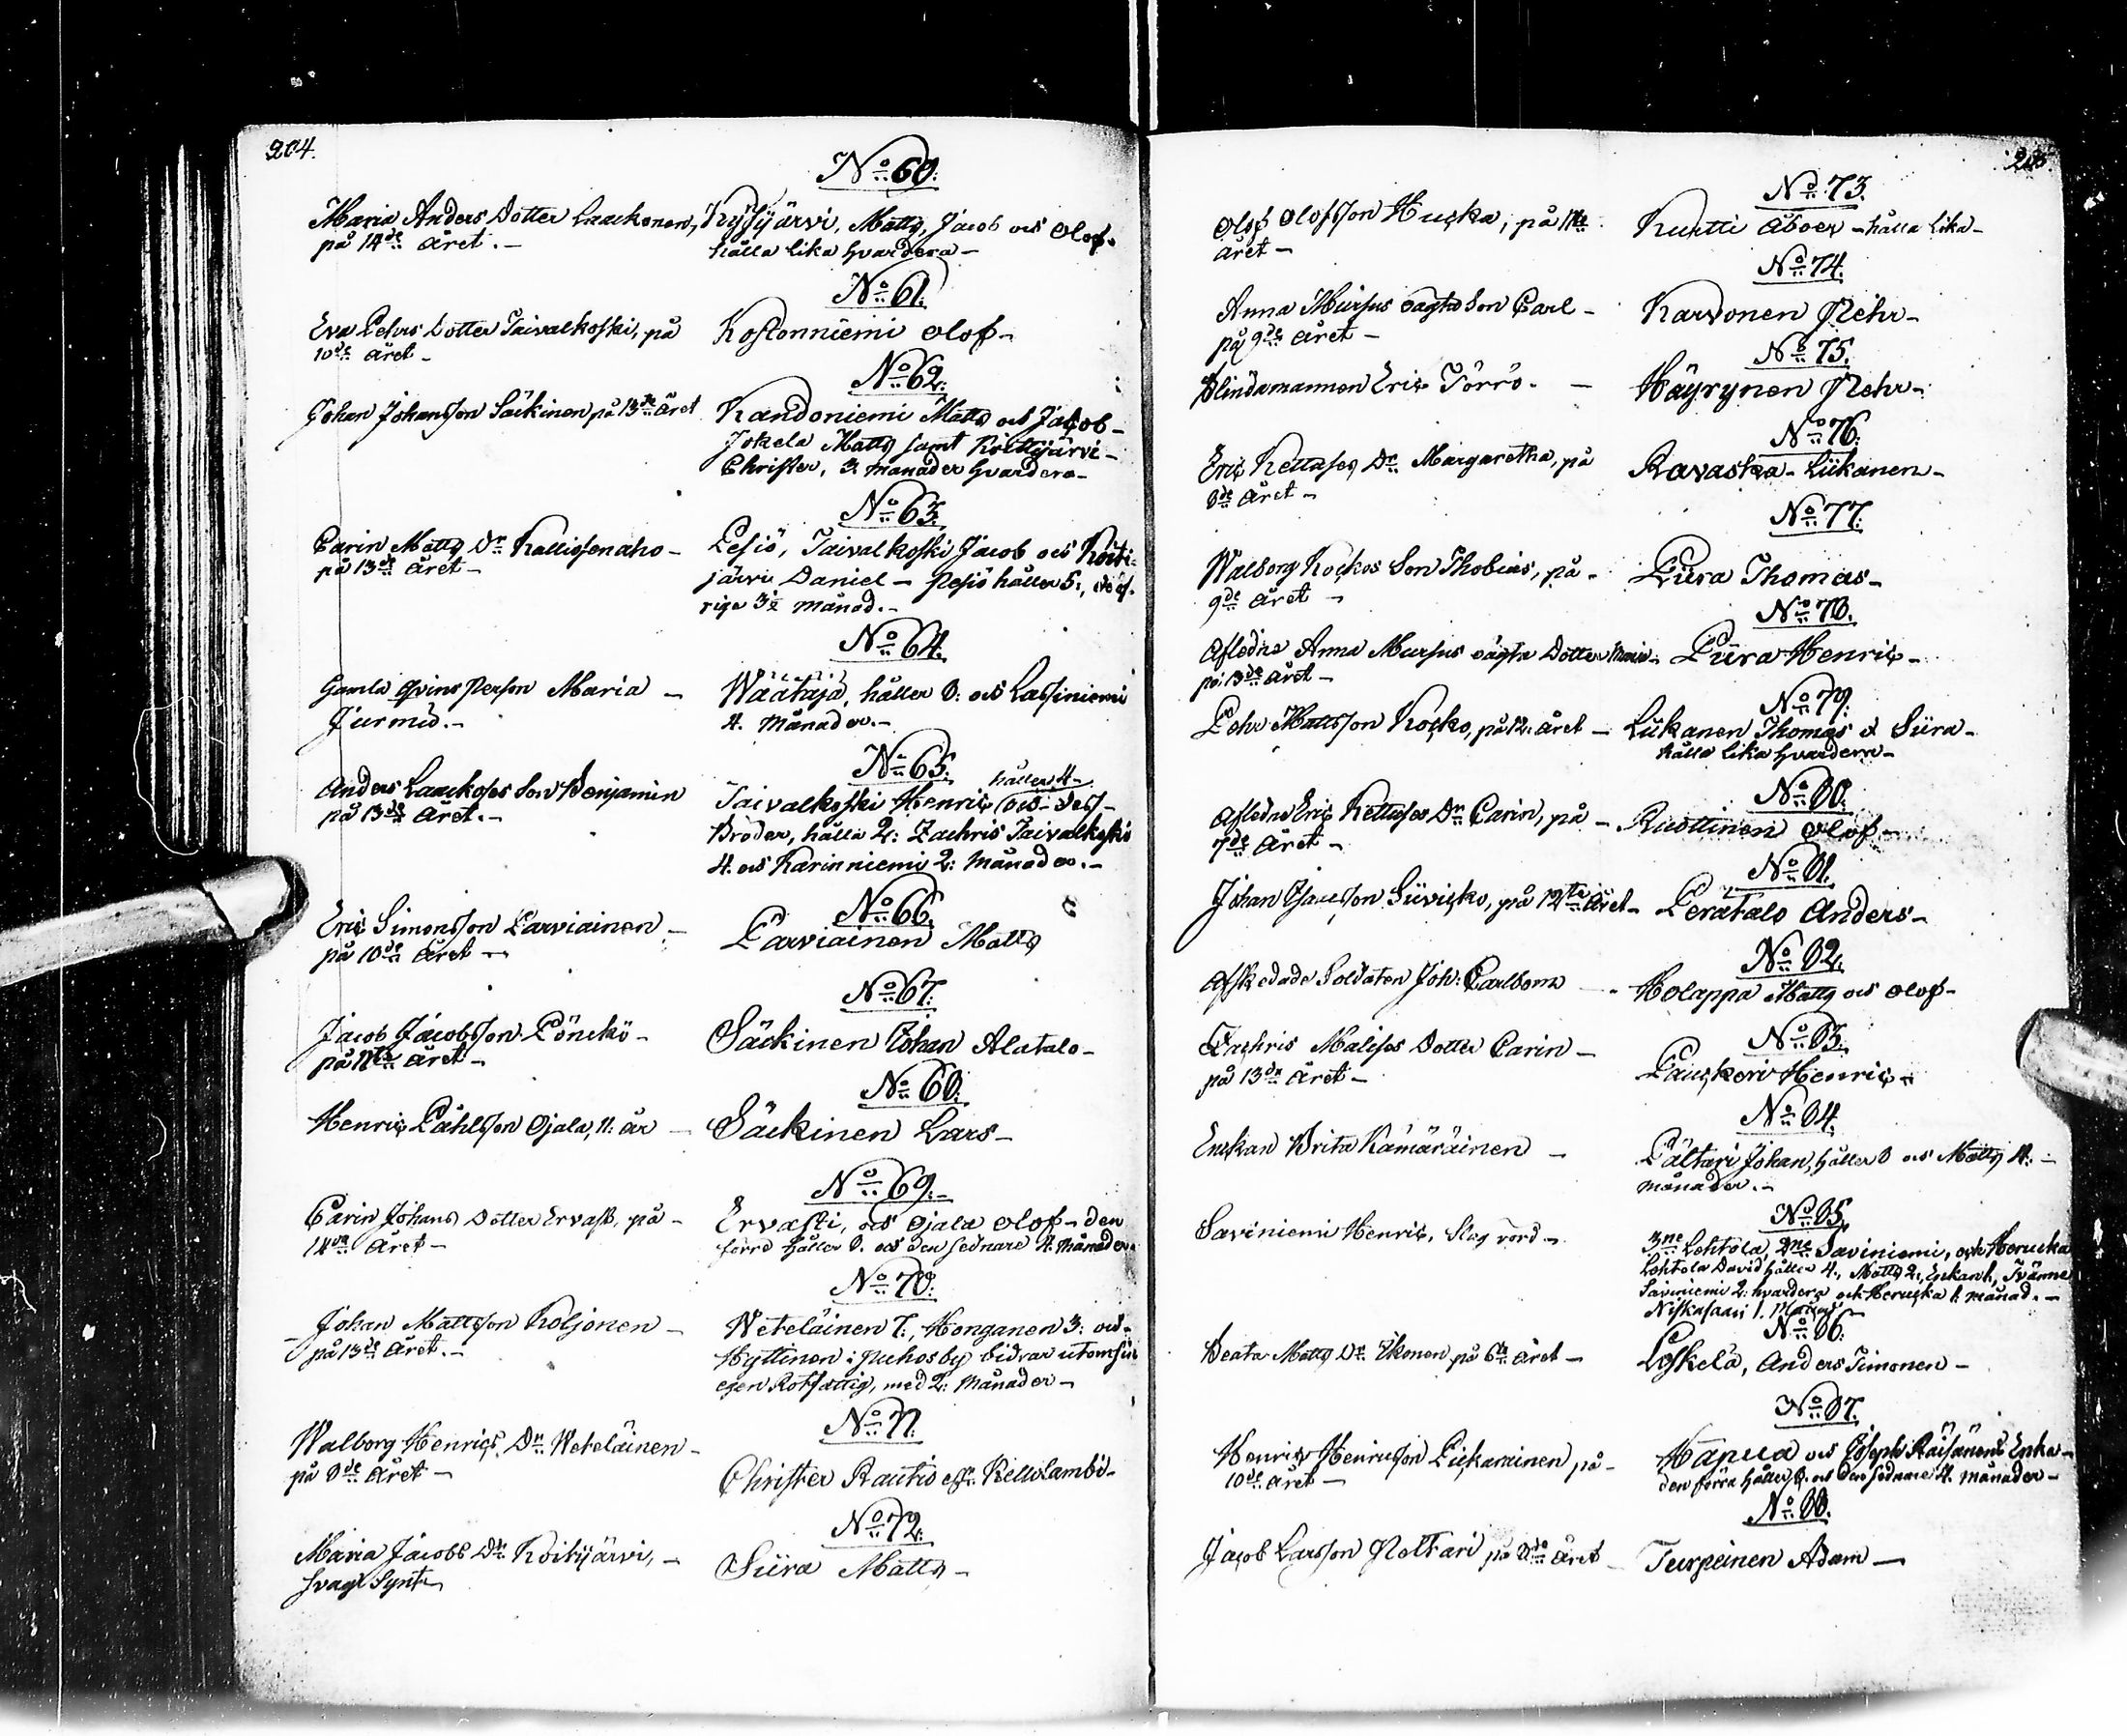 204.
No 60.
Maria Anders Dotter Laackonen,
på 14de Året.-
Kysyjärvi, Matts, Jacob och Olof.
hålla lika hvardera -
No 61.
Eva Pehrs Dotter Taivalkoski, på
10de Året -
Kostonniemi Olof -
No 62.
Johan Johansson Säkinen på 13de Året
Kandoniemi Matts och Jacob -
Jokela Matts samt Koittijärvi -
Christer, 3 månader hvardera -
No 63.
Carin Matts Dr Kallioisenaho -
på 13de Året -
Pesiö, Taivalkoski Jacob och Koiti-
järvi Daniel - Pesiö håller 5:, de öf-
rige 3½ månad.-
No 64.
Gamla qvins Person Maria -
Jurmu.-
Väätäjä, håller 8: och Lassiniemi
4. Månader.-
No 65.
Anders Laackoses Son Benjamin
på 13de Året.-
håller 4-
Taivalkoski Henric och dess -
Broder, hålla 2: Zachris Taivalkoski
4. och Karinniemi 2: Månader.-
No 66.
Eric Simonsson Parviainen -
på 10de Året -
Parviainen Matts
No 67.
Jacob Jacobsson Pönckö -
på 11te Året -
Säckinen Johan Alatalo -
No 68.
Henric Påhlsson Ojala, 11. år -
Säckinen Lars -
No 69.-
Carin Johans Dotter Ervast, på -
14de Året -
Ervasti, och Ojala Olof - den
förre håller 8. och den sednare 4. Månader.
No 70.
Johan Mattsson Koljonen -
på 13de Året.-
Weteläinen 7., Honganen 3: och -
Hyttinen i Puhosby bidrar utom sin
egen Rotfattig, med 2: Månader -
No 71.
Walborg Henrics Dr Weteläinen -
på 8de Året -
Christer Rautio eller Kellolambi -
No 72.
Maria Jacobs Dr Koitijärvi, -
svag Synt
Siira Matts -
No 73.
Olof Olofsson Hucka, på 11te
Året -
Kurtti Åboer - hålla lika -
No 74.
Anna Mursus oägta Son Carl -
på 9de Året -
Karvonen Pehr -
No 75.
Blindamannen Eric Törrö. -
Häyrynen Pehr -
No 76.
Eric Kettuses Dr Margaretha, på
8de Året -
Ravaska - Liikanen -
No 77.
Walborg Kockos Son Thobias, på -
9de Året -
Piira Thomas -
No 78.
Aflidne Anna Mursus oägta Dotter Maria
på 13de Året -
Piira Henric -
No 79.
Pehr Mattsson Kocko, på 12. Året -
Liikanen Thomas & Siira -
hålla lika hvardera -
No 80.
Aflidne Eric Kettuses Dr Carin, på -
7de Året -
Ruottinen Olof -
No 81.
Johan Isacsson Siivicko, på 12te Året -
Perätalo Anders -
No 82.
Afskedade Soldaten Joh: Carlbom
Holappa Matts och Olof -
No 83.
Zachris Malises Dotter Carin -
på 13de Året -
Pauckeri Henric -
No 84.
Enckan Brita Kämäräinen -
Pältari Johan, håller 8 och Matts 4: -
månader.-
No 85.
Saviniemi Henric, Slag rörd -
3ne Lehtola, 2ne Saviniemi, och Herucka
Lehtola David håller 4., Matts 2., Enkan 1., Tvänne
Saviniemi 2: hvardera och Herucka 1. månad. -
Niskasaari 1. Månad
No 86.
Beata Matts Dr Ekman på 6te Året -
Leskelä, Anders Timonen -
No 87.
Henric Henricsson Pickarainen på -
10de Året -
Hapua och Joseph Räisänens Enka -
den förra håller 8. och den sednare 4. Månader -
No 88.
Jacob Larsson Poltari på 8de Året -
Turpeinen Adam -